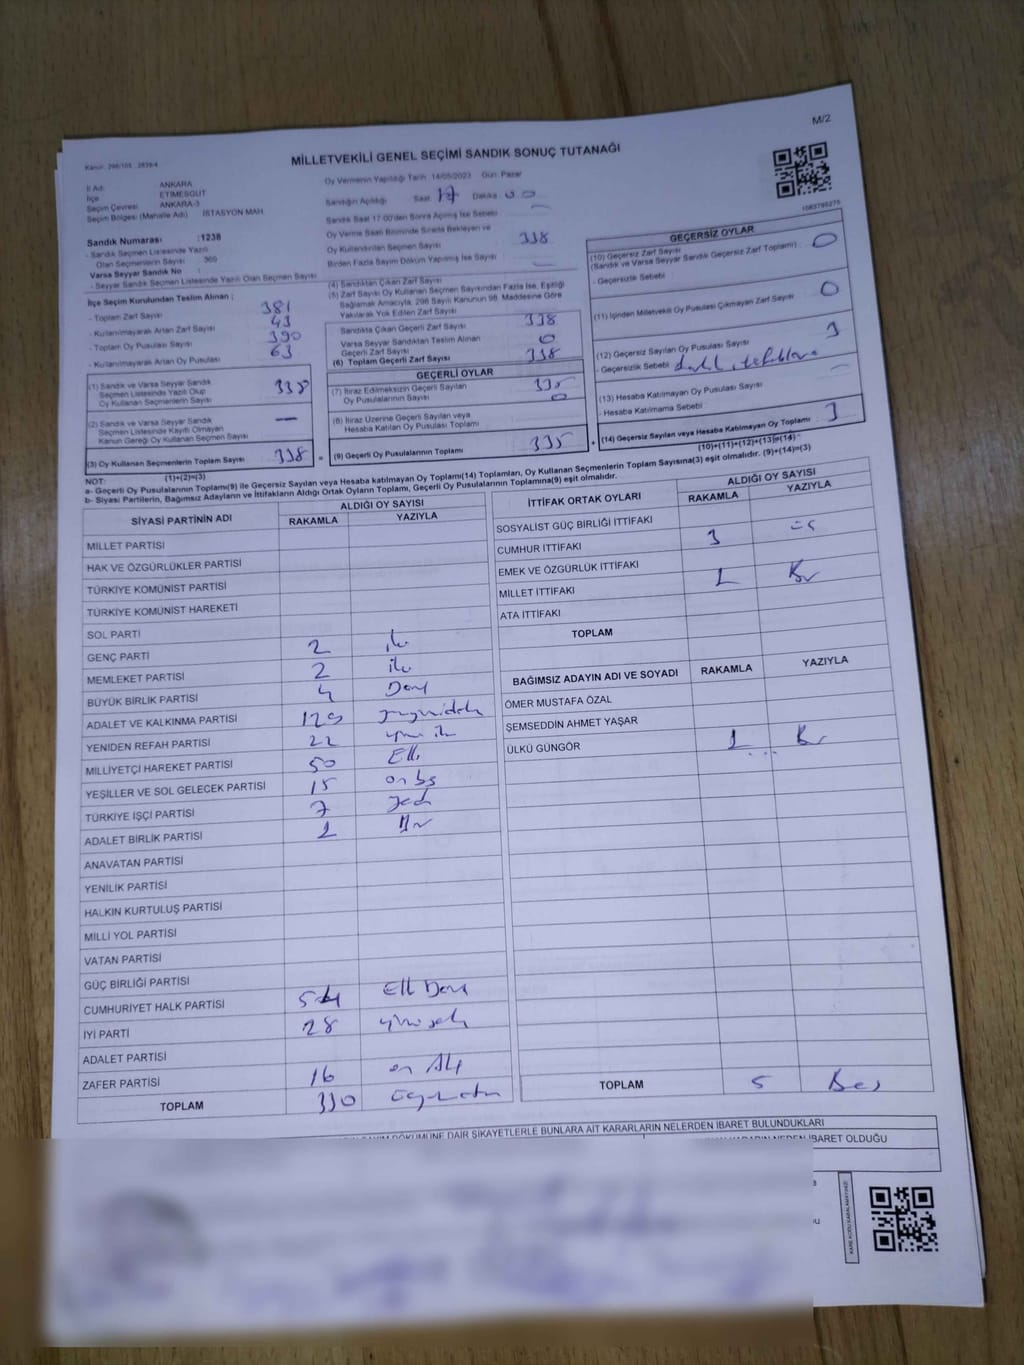 M/2
Kanun: 298/105 - 2839/4
MİLLETVEKİLİ GENEL SEÇİMİ SANDIK SONUÇ TUTANAĞI
İl Adı ANKARA
İlçe ETİMESGUT
Seçim Çevresi ANKARA-3
Seçim Bölgesi (Mahalle Adı) İSTASYON MAH.
Sandık Numarası :1238
- Sandık Seçmen Listesinde Yazılı
Olan Seçmenlerin Sayısı 369
Varsa Seyyar Sandık No :
- Seyyar Sandık Seçmen Listesinde Yazılı Olan Seçmen Sayısı
İlçe Seçim Kurulundan Teslim Alınan ;
- Toplam Zarf Sayısı 381
- Kullanılmayarak Artan Zarf Sayısı 43
- Toplam Oy Pusulası Sayısı 390
- Kullanılmayarak Artan Oy Pusulası 63
(1) Sandık ve Varsa Seyyar Sandık
Seçmen Listesinde Yazılı Olup
Oy Kullanan Seçmenlerin Sayısı 338
(2) Sandık ve Varsa Seyyar Sandık
Seçmen Listesinde Kayıtlı Olmayan
Kanun Gereği Oy Kullanan Seçmen Sayısı —
(3) Oy Kullanan Seçmenlerin Toplam Sayısı 338
(1)+(2)=(3)
Oy Vermenin Yapıldığı Tarih: 14/05/2023 Gün: Pazar
Sandığın Açıldığı Saat 17 Dakika 00
Sandık Saat 17:00'den Sonra Açılmış İse Sebebi —
Oy Verme Saati Bitiminde Sırada Bekleyen ve
Oy Kullandırılan Seçmen Sayısı 338
Birden Fazla Sayım Döküm Yapılmış İse Sayısı —
(4) Sandıktan Çıkan Zarf Sayısı
(5) Zarf Sayısı Oy Kullanan Seçmen Sayısından Fazla İse, Eşitliği
Sağlamak Amacıyla, 298 Sayılı Kanunun 98. Maddesine Göre
Yakılarak Yok Edilen Zarf Sayısı
Sandıkta Çıkan Geçerli Zarf Sayısı 338
Varsa Seyyar Sandıktan Teslim Alınan
Geçerli Zarf Sayısı 0
(6) Toplam Geçerli Zarf Sayısı 338
GEÇERLİ OYLAR
(7) İtiraz Edilmeksizin Geçerli Sayılan
Oy Pusulalarının Sayısı 335
(8) İtiraz Üzerine Geçerli Sayılan veya
Hesaba Katılan Oy Pusulası Toplamı 0
(9) Geçerli Oy Pusulalarının Toplamı 335
1083795275
GEÇERSİZ OYLAR
(10) Geçersiz Zarf Sayısı
(Sandık ve Varsa Seyyar Sandık Geçersiz Zarf Toplamı) 0
- Geçersizlik Sebebi :
(11) İçinden Milletvekili Oy Pusulası Çıkmayan Zarf Sayısı 0
(12) Geçersiz Sayılan Oy Pusulası Sayısı 3
- Geçersizlik Sebebi
(13) Hesaba Katılmayan Oy Pusulası Sayısı —
- Hesaba Katılmama Sebebi :
(14) Geçersiz Sayılan veya Hesaba Katılmayan Oy Toplamı 3
(10)+(11)+(12)+(13)=(14)
NOT:
a- Geçerli Oy Pusulalarının Toplamı(9) ile Geçersiz Sayılan veya Hesaba katılmayan Oy Toplamı(14) Toplamları, Oy Kullanan Seçmenlerin Toplam Sayısına(3) eşit olmalıdır. (9)+(14)=(3)
b- Siyasi Partilerin, Bağımsız Adayların ve İttifakların Aldığı Ortak Oyların Toplamı, Geçerli Oy Pusulalarının Toplamına(9) eşit olmalıdır.
SİYASİ PARTİNİN ADI ALDIĞI OY SAYISI
RAKAMLA YAZIYLA
MİLLET PARTİSİ
HAK VE ÖZGÜRLÜKLER PARTİSİ
TÜRKİYE KOMÜNİST PARTİSİ
TÜRKİYE KOMÜNİST HAREKETİ
SOL PARTİ
GENÇ PARTİ 2 iki
MEMLEKET PARTİSİ 2 iki
BÜYÜK BİRLİK PARTİSİ 4 Dört
ADALET VE KALKINMA PARTİSİ 129
YENİDEN REFAH PARTİSİ 22 yirmi iki
MİLLİYETÇİ HAREKET PARTİSİ 50 Elli
YEŞİLLER VE SOL GELECEK PARTİSİ 15 on beş
TÜRKİYE İŞÇİ PARTİSİ 7 yedi
ADALET BİRLİK PARTİSİ 1 Bir
ANAVATAN PARTİSİ
YENİLİK PARTİSİ
HALKIN KURTULUŞ PARTİSİ
MİLLİ YOL PARTİSİ
VATAN PARTİSİ
GÜÇ BİRLİĞİ PARTİSİ
CUMHURİYET HALK PARTİSİ 54 Elli Dört
İYİ PARTİ 28 yirmi sekiz
ADALET PARTİSİ
ZAFER PARTİSİ 16 on Altı
TOPLAM 330 üçyüzotuz
İTTİFAK ORTAK OYLARI ALDIĞI OY SAYISI
RAKAMLA YAZIYLA
SOSYALİST GÜÇ BİRLİĞİ İTTİFAKI
CUMHUR İTTİFAKI 3 üç
EMEK VE ÖZGÜRLÜK İTTİFAKI
MİLLET İTTİFAKI 1 Bir
ATA İTTİFAKI
TOPLAM
BAĞIMSIZ ADAYIN ADI VE SOYADI RAKAMLA YAZIYLA
ÖMER MUSTAFA ÖZAL
ŞEMSEDDİN AHMET YAŞAR
ÜLKÜ GÜNGÖR 1 Bir
TOPLAM 5 Beş
DÖKÜMÜNE DAİR ŞİKAYETLERLE BUNLARA AİT KARARLARIN NELERDEN İBARET BULUNDUKLARI
NEDEN İBARET OLDUĞU
KARE KODU KARALAMAYINIZ!